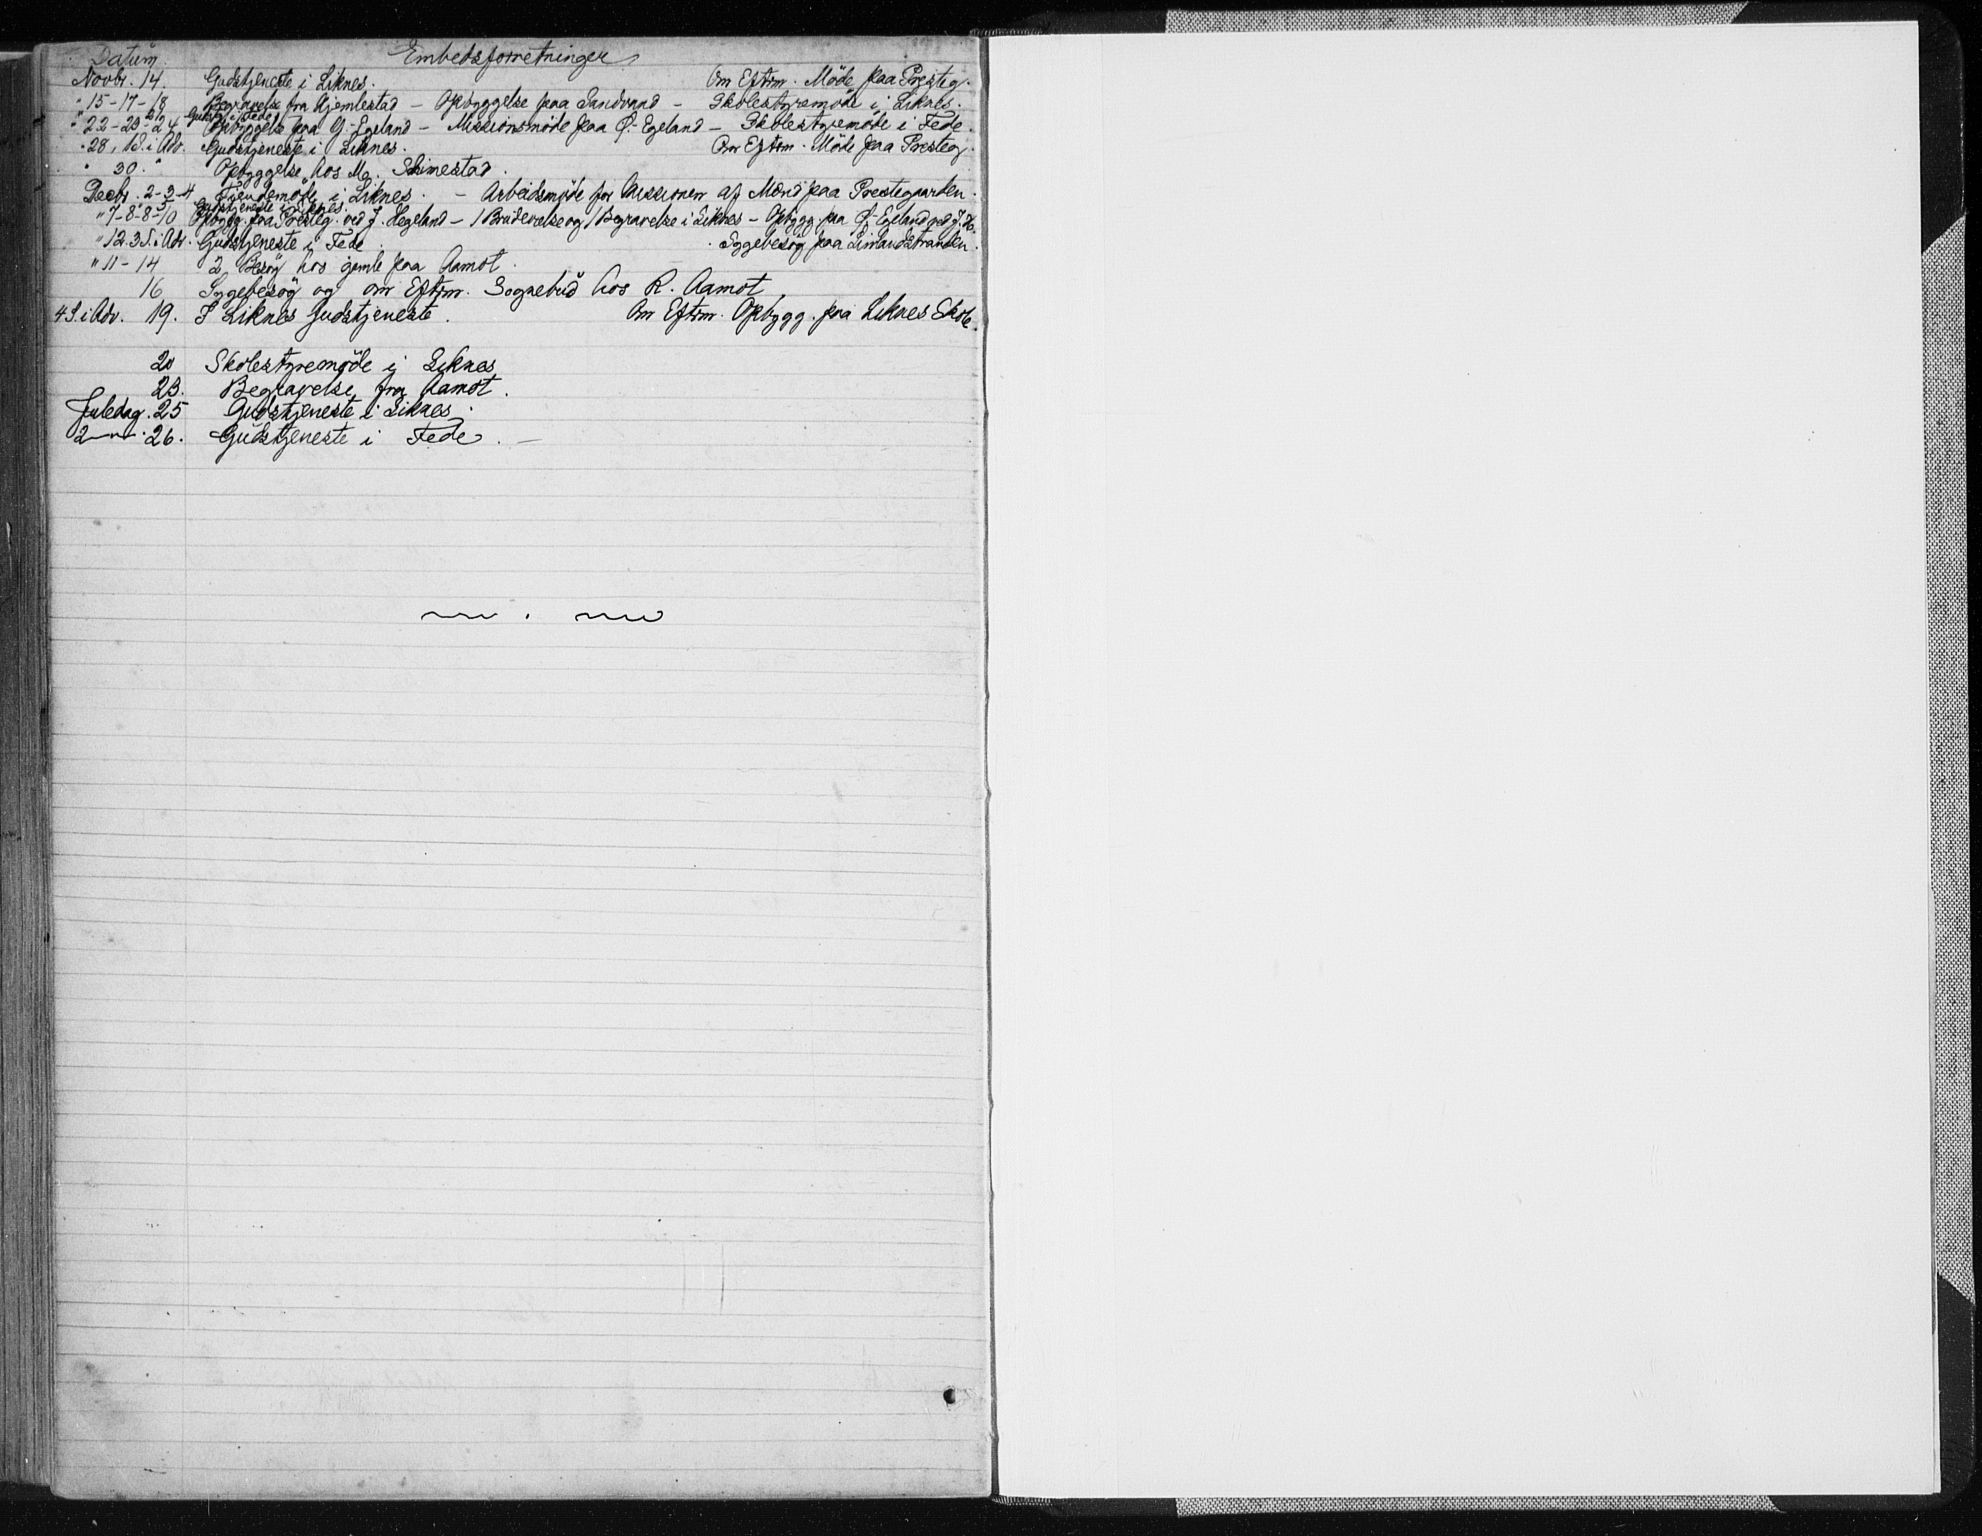 Datum. Embedsforretninger
Novbr. 14 Gudstjeneste i Liknes. Om Eftrm. Möde paa Presteg.
" 15-17-18 Begravelse fra Hjemlestad - Opbyggelse paa Sandvand - Skolestyremöde i Liknes.
21/ Gudstj. i Fede
" 22-23-24 Opbyggelse paa Y.-Egeland - Missionsmöde paa Ø.-Egeland - Skolestyremöde i Fede.
" 28, 1S. i Adv. Gudstjeneste i Liknes. Om Eftrm. Möde paa Presteg.
" 30. " Opbyggelse hos M. Skimestad.
Decbr. 2-3-4 i Liknes. - Arbeidsmöde for Missionen af Mænd paa Prestegaarden.
5 Gudstjeneste i Liknes.
" 7-8-8-10 Opbygg. paa Presteg. ved J. Hegeland - 1 Brudevielse og 1 Begravelse i Liknes - Opbygg. paa Ø.-Egeland ved J. H.
" 12. 3S. i Adv. Gudstjeneste i Fede. Sygebesög paa Lindlandstranden.
" 11-14 2 Besög hos gamle paa Aamot.
16 Sygebesög og om Eftrm. Sognebud hos R. Aamot
4 S. i Adv. 19. I Liknes Gudstjeneste. Om Eftrm. Opbygg. paa Liknes Skole.
20 Skolestyremöde i Liknes
23. Begravelse fra Aamot.
Juledag. 25 Gudstjeneste i Liknes.
2 — 26. Gudstjeneste i Fede. -